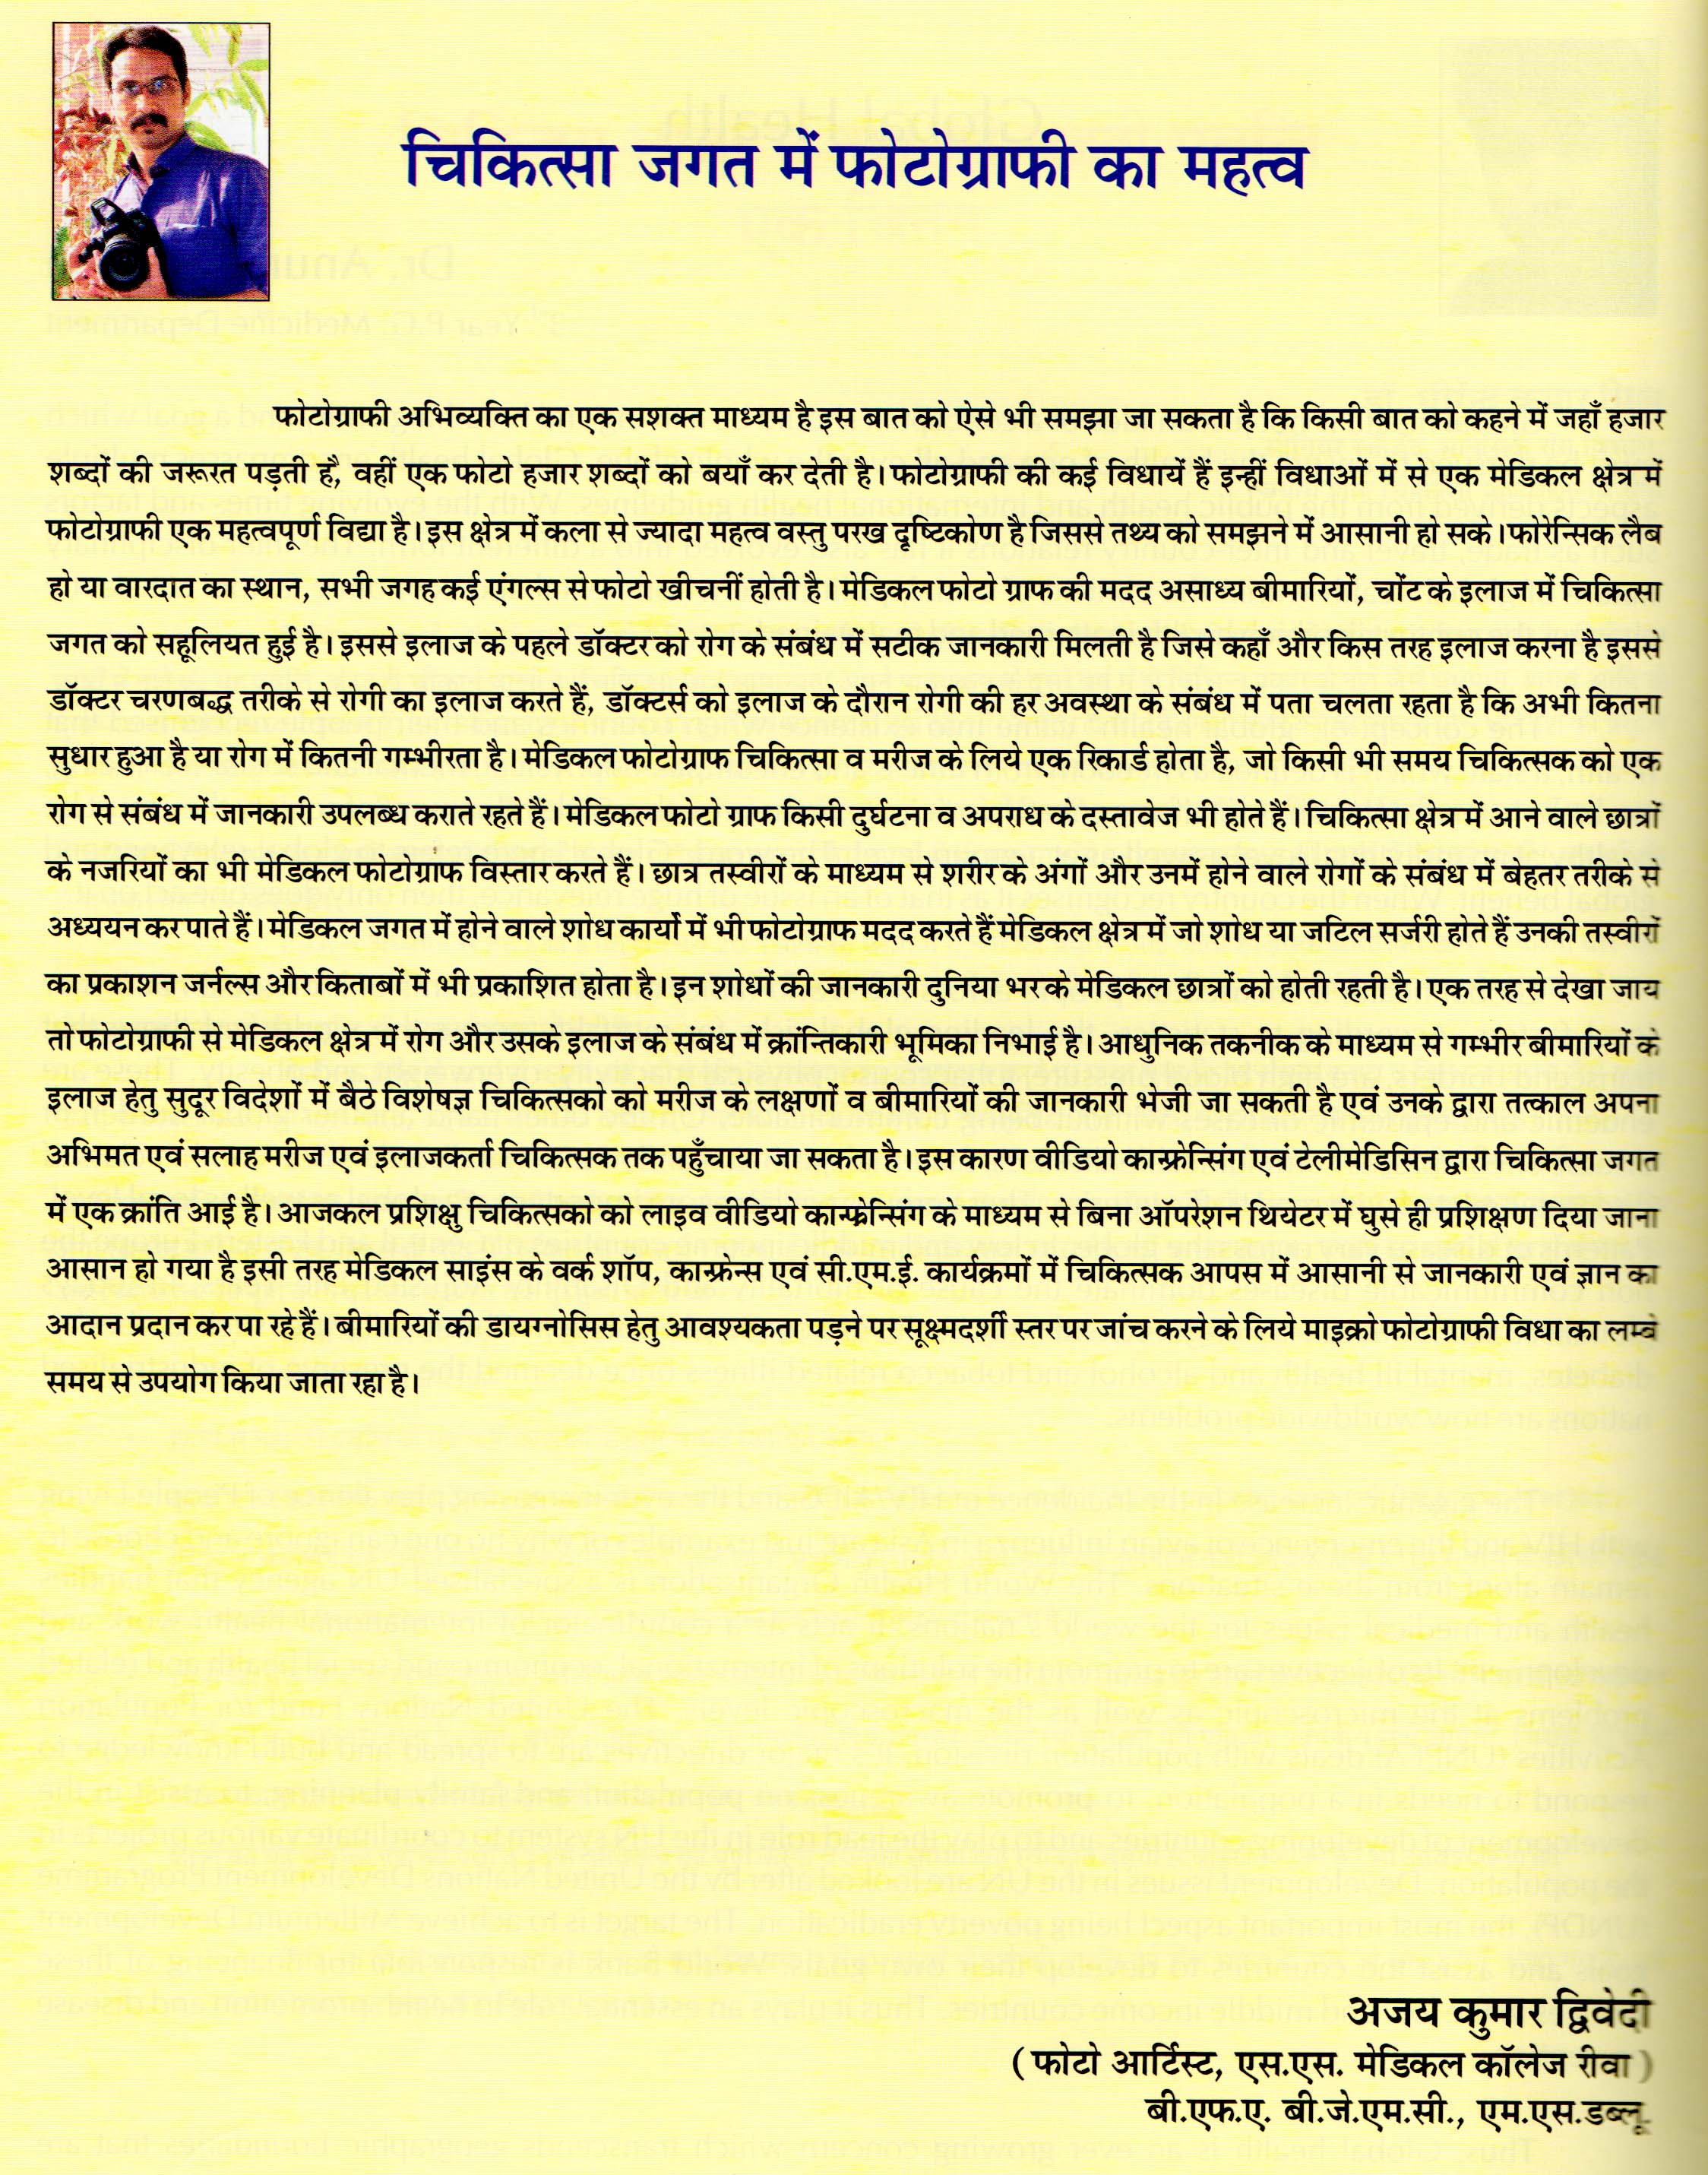 चिकित्सा जगत में फोटोग्राफी का महत्व
फोटोग्राफी अभिव्यक्ति का एक सशक्त माध्यम है इस बात को ऐसे भी समझा जा सकता है कि किसी बात को कहने में जहाँ हजार
शब्दों की जरूरत पड़ती है, वहीं एक फोटो हजार शब्दों को बयाँ कर देती है। फोटोग्राफी की कई विधायें हैं इन्हीं विधाओं में से एक मेडिकल क्षेत्र में
फोटोग्राफी एक महत्वपूर्ण विद्या है। इस क्षेत्र में कला से ज्यादा महत्व वस्तु परख दृष्टिकोण है जिससे तथ्य को समझने में आसानी हो सके। फोरेन्सिक लैब
हो या वारदात का स्थान, सभी जगह कई एंगल्स से फोटो खीचनीं होती है। मेडिकल फोटो ग्राफ की मदद असाध्य बीमारियों, चोंट के इलाज में चिकित्सा
जगत को सहूलियत हुई है। इससे इलाज के पहले डॉक्टर को रोग के संबंध में सटीक जानकारी मिलती है जिसे कहाँ और किस तरह इलाज करना है इससे
डॉक्टर चरणबद्ध तरीके से रोगी का इलाज करते हैं, डॉक्टर्स को इलाज के दौरान रोगी की हर अवस्था के संबंध में पता चलता रहता है कि अभी कितना
सुधार हुआ है या रोग में कितनी गम्भीरता है। मेडिकल फोटोग्राफ चिकित्सा व मरीज के लिये एक रिकार्ड होता है, जो किसी भी समय चिकित्सक को एक
रोग से संबंध में जानकारी उपलब्ध कराते रहते हैं। मेडिकल फोटो ग्राफ किसी दुर्घटना व अपराध के दस्तावेज भी होते हैं। चिकित्सा क्षेत्र में आने वाले छात्रों
के नजरियों का भी मेडिकल फोटोग्राफ विस्तार करते हैं। छात्र तस्वीरों के माध्यम से शरीर के अंगों और उनमें होने वाले रोगों के संबंध में बेहतर तरीके से
अध्ययन कर पाते हैं। मेडिकल जगत में होने वाले शोध कार्यो में भी फोटोग्राफ मदद करते हैं मेडिकल क्षेत्र में जो शोध या जटिल सर्जरी होते हैं उनकी तस्वीरों
का प्रकाशन जर्नल्स और किताबों में भी प्रकाशित होता है। इन शोधों की जानकारी दुनिया भर के मेडिकल छात्रों को होती रहती है। एक तरह से देखा जाय
तो फोटोग्राफी से मेडिकल क्षेत्र में रोग और उसके इलाज के संबंध में क्रांन्तिकारी भूमिका निभाई है। आधुनिक तकनीक के माध्यम से गम्भीर बीमारियों के
इलाज हेतु सुदूर विदेशों में बैठे विशेषज्ञ चिकित्सको को मरीज के लक्षणों व बीमारियों की जानकारी भेजी जा सकती है एवं उनके द्वारा तत्काल अपना
अभिमत एवं सलाह मरीज एवं इलाजकर्ता चिकित्सक तक पहुँचाया जा सकता है। इस कारण वीडियो कान्फ्रेन्सिंग एवं टेलीमेडिसिन द्वारा चिकित्सा जगत
में एक क्रांति आई है। आजकल प्रशिक्षु चिकित्सको को लाइव वीडियो कान्फ्रेन्सिंग के माध्यम से बिना ऑपरेशन थियेटर में घुसे ही प्रशिक्षण दिया जाना
आसान हो गया है इसी तरह मेडिकल साइंस के वर्क शॉप, कान्फ्रेन्स एवं सी.एम.ई. कार्यक्रमों में चिकित्सक आपस में आसानी से जानकारी एवं ज्ञान का
आदान प्रदान कर पा रहे हैं। बीमारियों की डायग्नोसिस हेतु आवश्यकता पड़ने पर सूक्ष्मदर्शी स्तर पर जांच करने के लिये माइक्रो फोटोग्राफी विधा का लम्बे
समय से उपयोग किया जाता रहा है।
अजय कुमार द्विवेदी
( फोटो आर्टिस्ट, एस.एस. मेडिकल कॉलेज रीवा )
बी.एफ.ए. बी.जे.एम.सी., एम.एस.डब्लू.